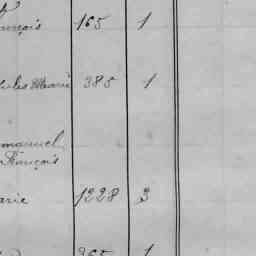 ançois 165 1
Jules Marie 385 1
Emmanuel
François
Marie 1228 3
365 1